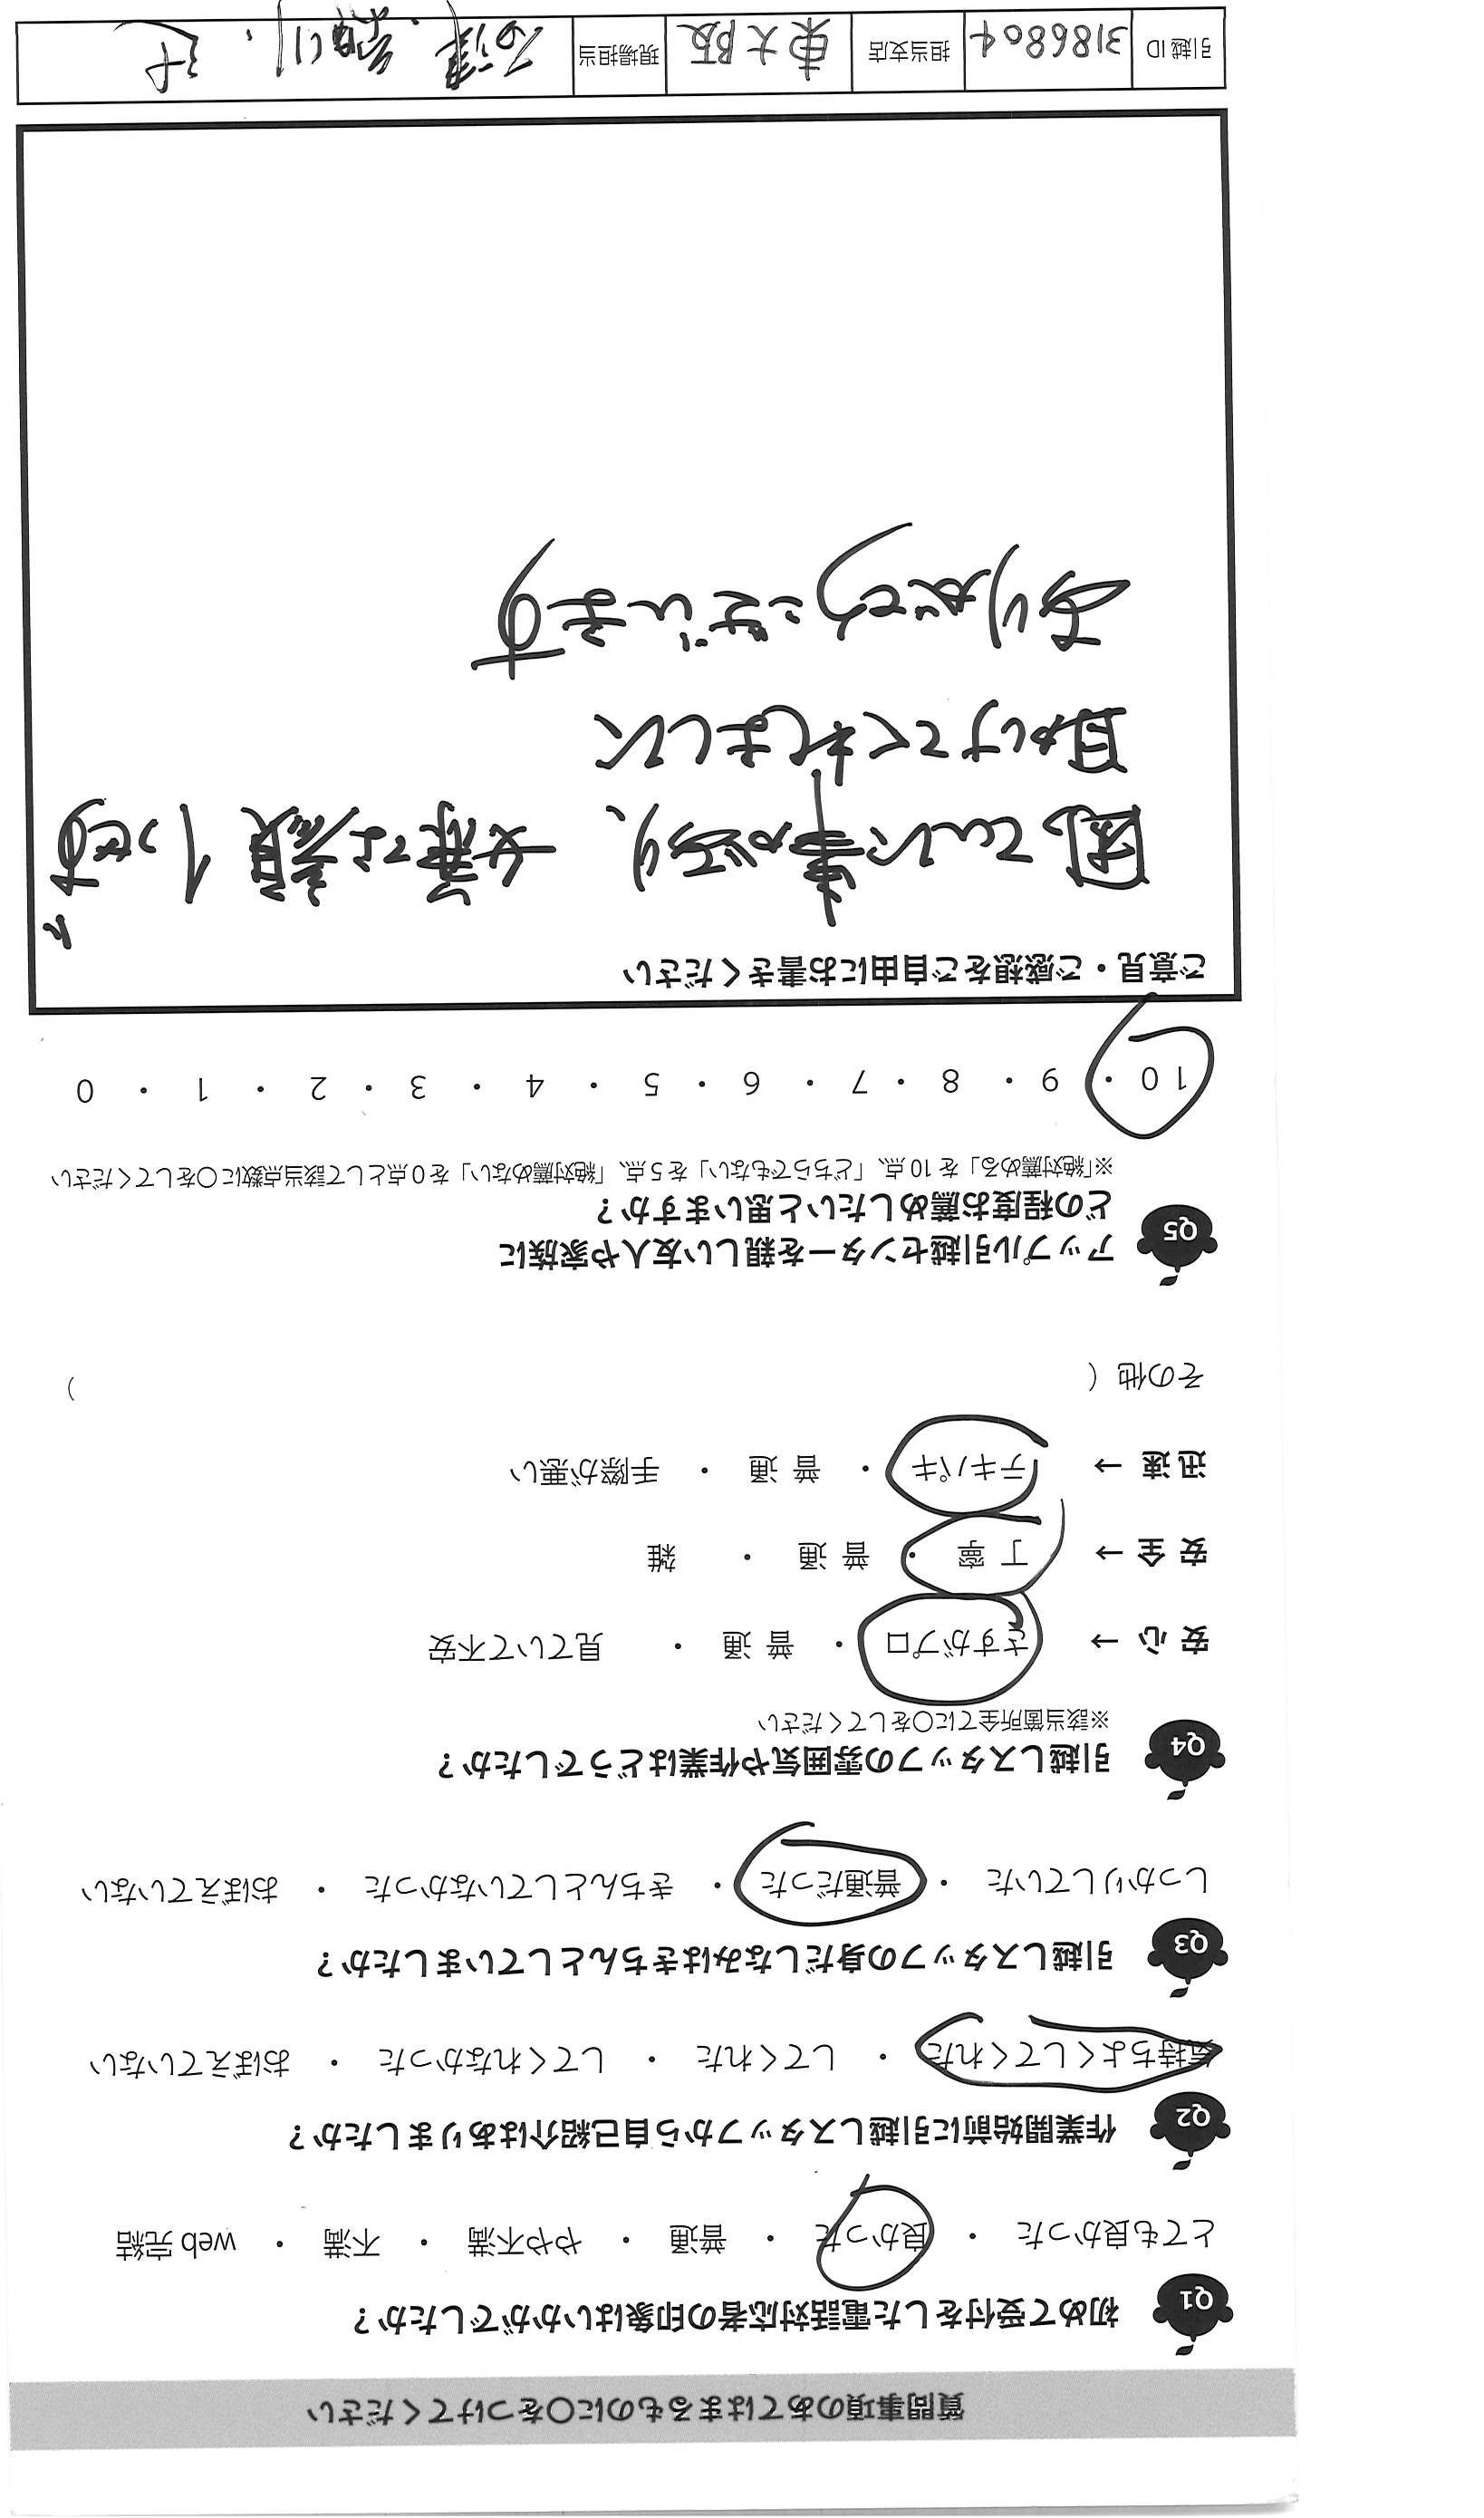 質問事項のあてはまるものに〇をつけてください
Q1 初めて受付をした電話対応者の印象はいかがでしたか？
とても良かった ・ 良かった ・ 普通 ・ やや不満 ・ 不満 ・ web 完結
Q2 作業開始前に引越しスタッフから自己紹介はありましたか？
気持ちよくしてくれた ・ してくれた ・ してくれなかった ・ おぼえていない
Q3 引越しスタッフの身だしなみはきちんとしていましたか？
しっかりしていた ・ 普通だった ・ きちんとしていなかった ・ おぼえていない
Q4 引越しスタッフの雰囲気や作業はどうでしたか？
※該当箇所全てに〇をしてください
安 心 → さすがプロ ・ 普 通 ・ 見ていて不安
安 全 → 丁 寧 ・ 普 通 ・ 雑
迅 速 → テキパキ ・ 普 通 ・ 手際が悪い
その他（ ）
Q5 アップル引越センターを親しい友人や家族に
どの程度お薦めしたいと思いますか？
※「絶対薦める」を 10 点、「どちらでもない」を 5 点、「絶対薦めない」を 0 点として該当点数に〇をしてください
10 ・ 9 ・ 8 ・ 7 ・ 6 ・ 5 ・ 4 ・ 3 ・ 2 ・ 1 ・ 0
ご意見・ご感想をご自由にお書きください
困っていた事があり、女藤な顔1つせず
助けてくれました
ありがとうございます
引越 ID 3186804 担当支店 東大阪 現場担当